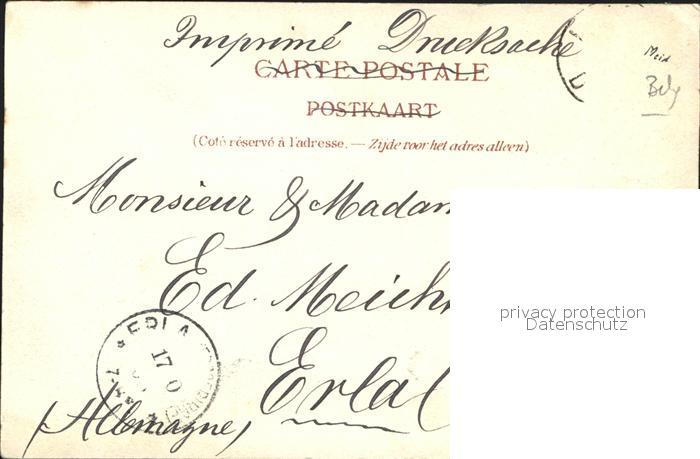 Imprimé Drucksache
CARTE POSTALE
POSTKAART
(Coté réservé à l'adresse. — Zijde voor het adres alleen)
Monsieur & Madam
Ed. Meich
Erla
(Allemagne)
* ERLA
17 0
privacy protection
Datenschutz